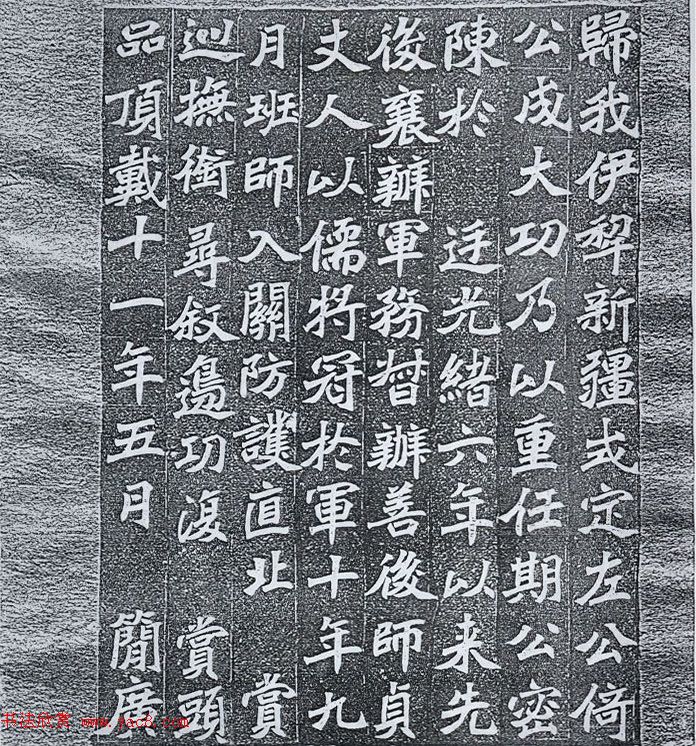 歸我伊犂新疆式定左公倚
公成大功乃以重任期公密
陳於 廷光緒六年以来先
後襄辦軍務督辦善後師貞
丈人以儒將冠於軍十年九
月班師入關防護直北 賞
巡撫銜尋敘邊功復 賞頭
品頂戴十一年五月 簡廣
书法欣赏 www.yac8.com